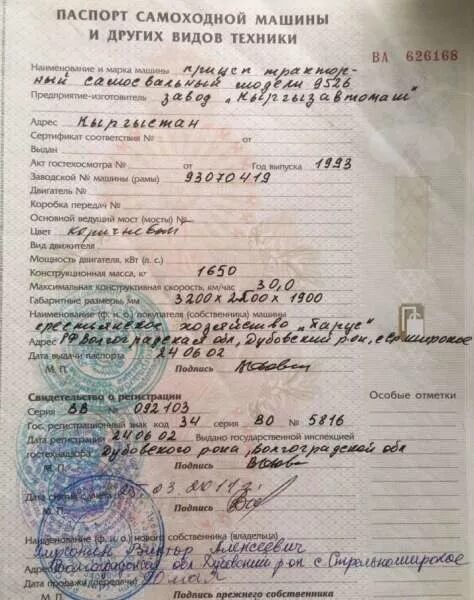 ПАСПОРТ САМОХОДНОЙ МАШИНЫ
И ДРУГИХ ВИДОВ ТЕХНИКИ
ВА 626168
Наименование и марка машины прицеп трактор-
ный самосвальный модели 9526
Предприятие-изготовитель завод "Кыргызавтомаш"
Адрес Кыргыстан
Сертификат соответствия № от
Выдан
Акт гостехосмотра № от Год выпуска 1993
Заводской № машины (рамы) 93070419
Двигатель №
Коробка передач №
Основной ведущий мост (мосты) №
Цвет коричневый
Вид движителя
Мощность двигателя, кВт (л. с.)
Конструкционная масса, кг 1650
Максимальная конструктивная скорость, км/час 30,0
Габаритные размеры, мм 3200 х 2200 х 1900
Наименование (ф. и. о.) покупателя (собственника) машины
крестьянское хозяйство "Парус"
Адрес РФ Волгоградская обл, Дубовский р-он, с Стрельноширокое
Дата выдачи паспорта 24 06 02
М. П. Подпись
Свидетельство о регистрации Особые отметки
Серия ВВ № 092103
Гос. регистрационный знак код 34 серия ВО № 5816
Дата регистрации 24 06 02 Выдано государственной инспекцией
гостехнадзора Дубовского р-она, Волгоградской обл
М. П. Подпись
Дата снятия с учета 03. 2011г.
М. П. Подпись
Наименование (ф. и. о.) нового собственника (владельца)
Виктор Алексеевич
Волгоградская обл Дубовский р-он с Стрельноширокое
Дата продажи (передачи) мая
М. П. Подпись прежнего собственника